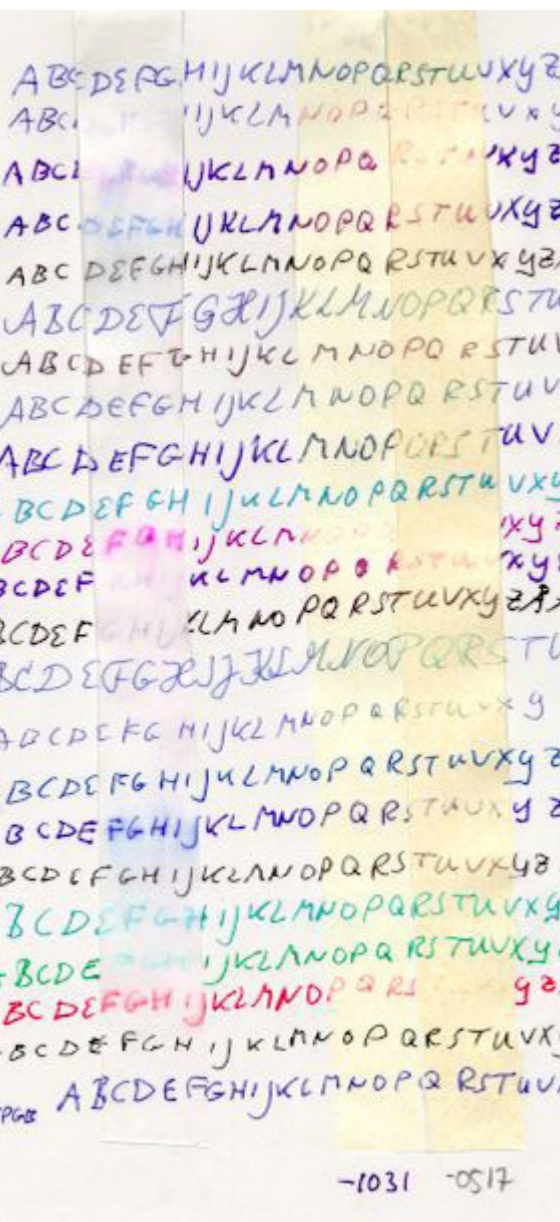 ABCDEFGHIJKLMNOPQRSTUVXYZ
ABC IJKLMNOPQ RSTUVXY
ABCD IJKLMNOPQ RSTUVXYZ
ABC DEFGH IJKLMNOPQRSTUVXYZ
ABC DEFGHIJKLMNOPQ RSTUVXYZ
ABCDEFGHIJKLMNOPQRSTU
ABCDEFGHIJKL MNOPQ RSTUV
ABCDEFGHIJKLMNOPQ RSTUV
ABCDEFGHIJKLMNOPQRSTUV
BCDEFGH IJKLMNOPQRSTUVXY
BCDEFGH IJKLMN VXY
BCDEFGH KLMNOPQ RSTUVXYZ
BCDEFGHIJKLMNO PQRSTUVXYZ
BCDEFGHIJKLMNOPQRSTU
ABCDEFG HIJKLMNOPQRSTUVXY
BCDEFGHIJKLMNOPQRSTUVXYZ
BCDEFGHIJKLMNOPQRSTUVXYZ
BCDEFGHIJKLMNOPQRSTUVXYZ
BCDEFGHIJKLMNOPQRSTUVXY
BCDE FGH IJKLMNOPQ RSTUVXY
BCDEFGHIJKLMNOPQRS YZ
BCDEFGHIJKLMNOPQRSTUVX
ABCDEFGHIJKLMNOPQ RSTUV
-1031 -0517